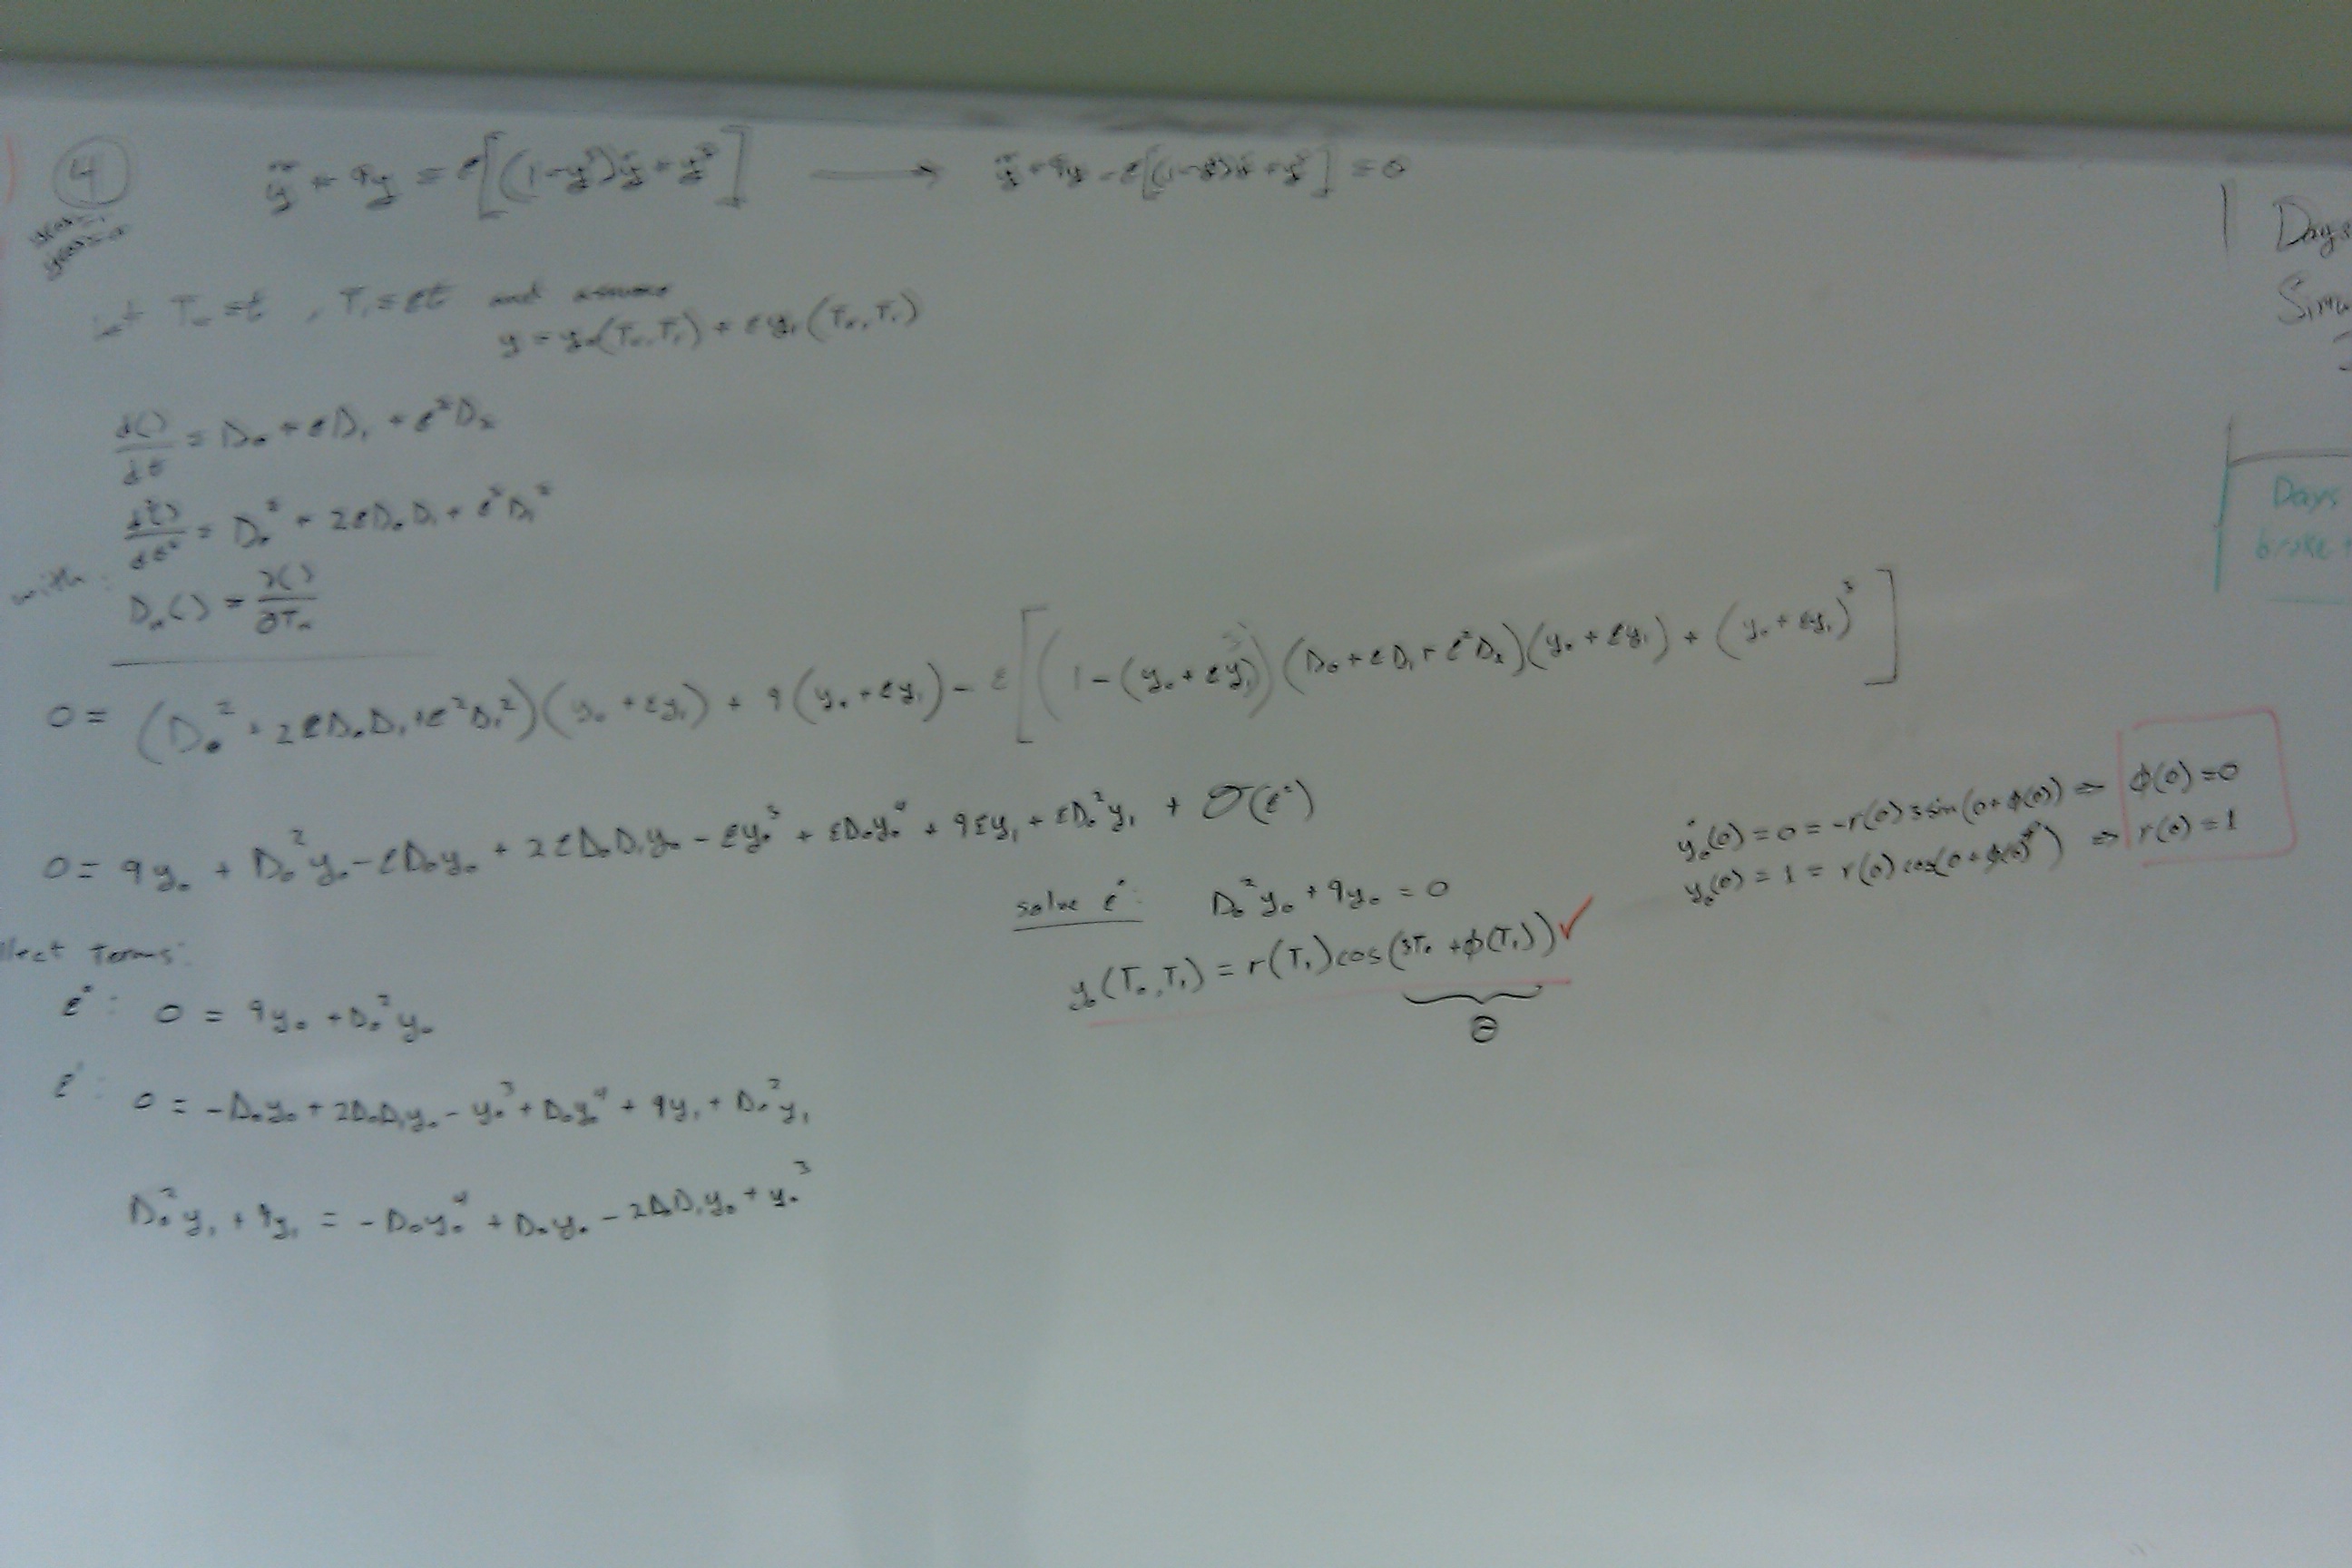 4
ÿ + 9y = ε[(1-y³)ẏ + y³] → ÿ + 9y - ε[(1-y³)ẏ + y³] = 0
y(0)=1
ẏ(0)=0
Let T₀ = t , T₁ = εt and assume
y = y₀(T₀,T₁) + εy₁(T₀,T₁)
d()/dt = D₀ + εD₁ + ε²D₂
d²()/dt² = D₀² + 2εD₀D₁ + ε²D₁²
with: Dₙ() = ∂()/∂Tₙ
0 = (D₀² + 2εD₀D₁ + ε²D₁²)(y₀ + εy₁) + 9(y₀ + εy₁) - ε[(1-(y₀ + εy₁)³)(D₀ + εD₁ + ε²D₂)(y₀ + εy₁) + (y₀ + εy₁)³]
0 = 9y₀ + D₀²y₀ - εD₀y₀ + 2εD₀D₁y₀ - εy₀³ + εD₀y₀⁴ + 9εy₁ + εD₀²y₁ + O(ε²)
llect Terms:
ε⁰: 0 = 9y₀ + D₀²y₀
ε¹: 0 = -D₀y₀ + 2D₀D₁y₀ - y₀³ + D₀y₀⁴ + 9y₁ + D₀²y₁
D₀²y₁ + 9y₁ = -D₀y₀⁴ + D₀y₀ - 2D₀D₁y₀ + y₀³
solve ε⁰: D₀²y₀ + 9y₀ = 0
y₀(T₀,T₁) = r(T₁)cos(3T₀ + φ(T₁)) ✓
θ
ẏ₀(0) = 0 = -r(0)3sin(0+φ(0)) ⇒ φ(0) = 0
y₀(0) = 1 = r(0)cos(0+φ(0)) ⇒ r(0) = 1
Days
Days